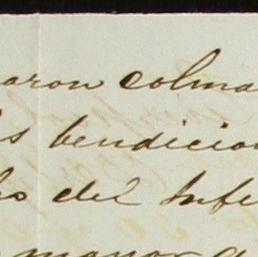 aron colma
s bendicion
os del Infe
manor a